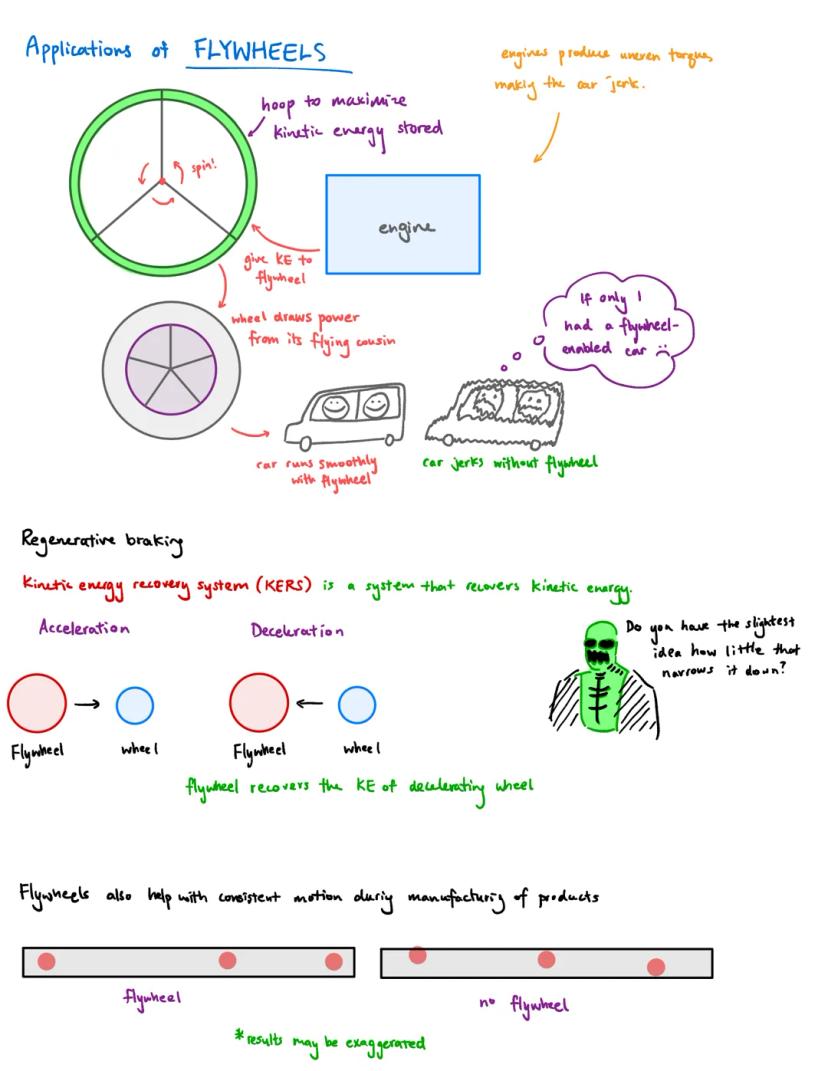 Applications of FLYWHEELS
engines produce uneven torque,
making the car jerk.
hoop to maximize
kinetic energy stored
spin!
engine
give KE to
flywheel
wheel draws power
from its flying cousin
If only I
had a flywheel-
enabled car :(
car runs smoothly
with flywheel
car jerks without flywheel
Regenerative braking
Kinetic energy recovery system (KERS) is a system that recovers kinetic energy.
Acceleration
Deceleration
Do you have the slightest
idea how little that
narrows it down?
Flywheel
wheel
Flywheel
wheel
flywheel recovers the KE of decelerating wheel
Flywheels also help with consistent motion during manufacturing of products
flywheel
no flywheel
*results may be exaggerated